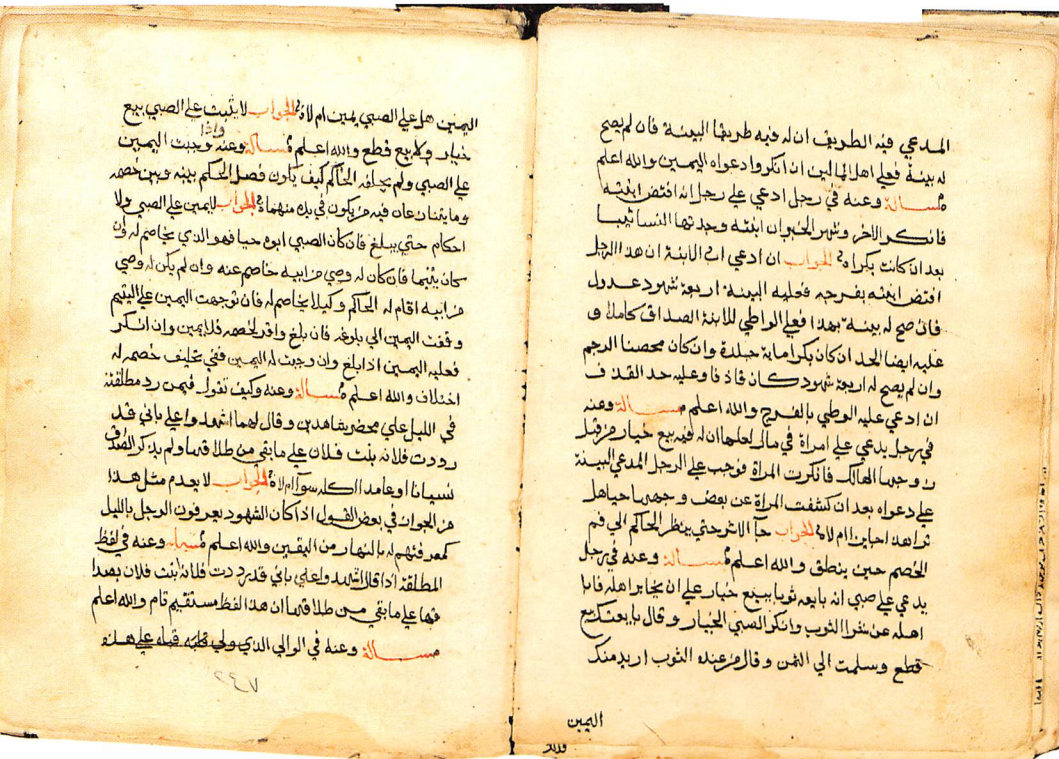 المدعي فيه الطريق ان له فيه طريقا البينة فان لم يصح
له بينة فعلي اهل المال يمين ان انكروا دعواه اليمين والله اعلم
مسالة وعنه في رجل ادعي علي رجل انه افتض ابنته
فانكر الاخر وشهر الخبر وان ابنته وجدتها النسا ثيبا
بعد ان كانت بكرا الجواب ان ادعي اب الابنة ان هذا الرجل
افتض ابنته بفرجه فعليه البينة اربعة شهود عدول
فان صح له بينة بهذا فعلي الواطي للابنة الصداق كاملا و
عليه ايضا الحد ان كان بكرا ماية جلدة وان كان محصنا الرجم
وان لم يصح له اربعة شهود كان قاذفا وعليه حد القذف
ان ادعي عليه الوطي بالفرج والله اعلم مسالة وعنه
في رجل يدعي علي امراة في مال لعلها ان له فيه بيع خيار من قبل
زوجها الهالك فانكرت المراة فوجب علي الرجل المدعي البينة
علي دعواه بعد ان كشفت المراة عن بعض وجهها حيا هل
تراهذا جايز ام لا الجواب جآ الاثر حتي ينظر الحاكم الي فم
الخصم حين ينطق والله اعلم مسالة وعنه في رجل
يدعي علي صبي انه بايعه ثوبا ببيع خيار علي ان يخابر اهله فابا
اهله عن شرا الثوب وانكر الصبي الخيار وقال بايعتك بيع
قطع وسلمت الي الثمن وقال من عنده الثوب اريد منك
اليمين
اليمين هل علي الصبي يمين ام لا الجواب لا يثبت علي الصبي بيع
خيار ولا بيع قطع والله اعلم مسالة وعنه واذا وجبت اليمين
علي الصبي ولم يحلفه الحاكم كيف يكون فصل الحكم بينه وبين خصمه
وما يتنازعان فيه من يكون في يده منهما الجواب لا يمين علي الصبي ولا
احكام حتي يبلغ فان كان الصبي ابوه حيا فهو الذي يخاصم له وان
كان يتيما فان كان له وصي من ابيه خاصم عنه وان لم يكن له وصي
من ابيه اقام له الحاكم وكيلا يخاصم له فان توجهت اليمين علي اليتيم
وقفت اليمين الي بلوغه فان بلغ واقر لخصمه فلا يمين وان انكر
فعليه اليمين اذا بلغ وان وجبت له اليمين ففي تحليف خصمه له
اختلاف والله اعلم مسالة وعنه وكيف تقول فيمن رد مطلقته
في الليل علي محضر شاهدين وقال لهما اشهدوا علي باني قد
رددت فلانه بنت فلان علي ما بقي من طلاقها ولم يذكر الصداق
نسيانا او عامدا الكله سوآ ام لا الجواب لا يعدم مثل هذا
من الجواز في بعض القول اذا كان الشهود يعرفون الرجل بالليل
كمعرفتهم له بالنهار من اليقين والله اعلم مسالة وعنه في لفظ
المطلقة اذا قال اشهدوا علي باني قد رددت فلانة بنت فلان بصدا
قها علي ما بقي من طلاقها ان هذا اللفظ مستقيم تام والله اعلم
مسالة وعنه في الوالي الذي ولي قبله علي هذه
٢٤٧